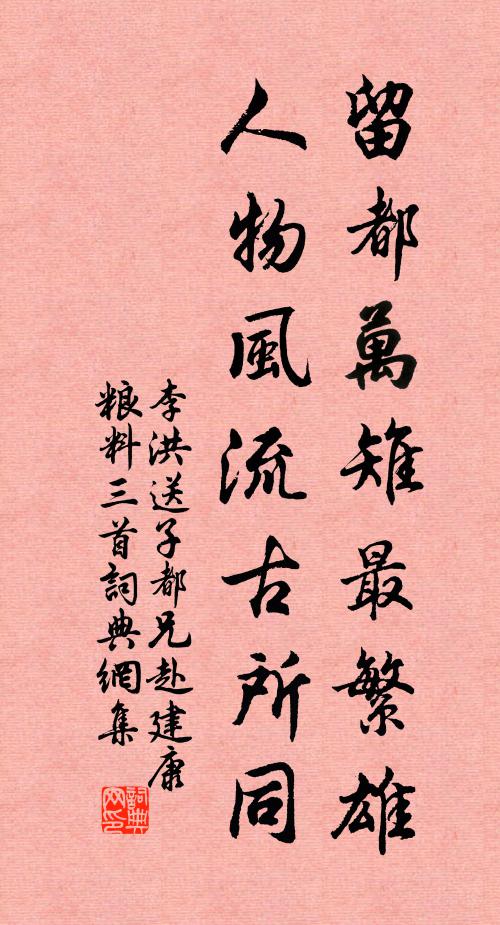 留都萬雉最繁雄
人物風流古所同
李洪送子都兄赴建康
粮料三首詞典網集
詞典
网印